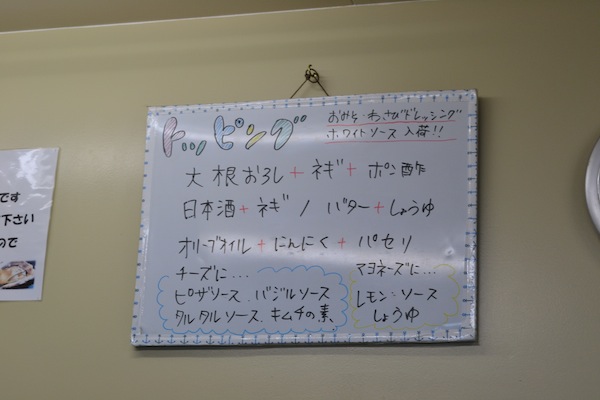 トッピング
おみそ・わさびドレッシング
ホワイトソース 入荷!!
大根おろし + ネギ + ポン酢
日本酒 + ネギ / バター + しょうゆ
オリーブオイル + にんにく + パセリ
チーズに...
ピザソース、バジルソース
タルタルソース、キムチの素
マヨネーズに...
レモン・ソース
しょうゆ
です
下さい
ので